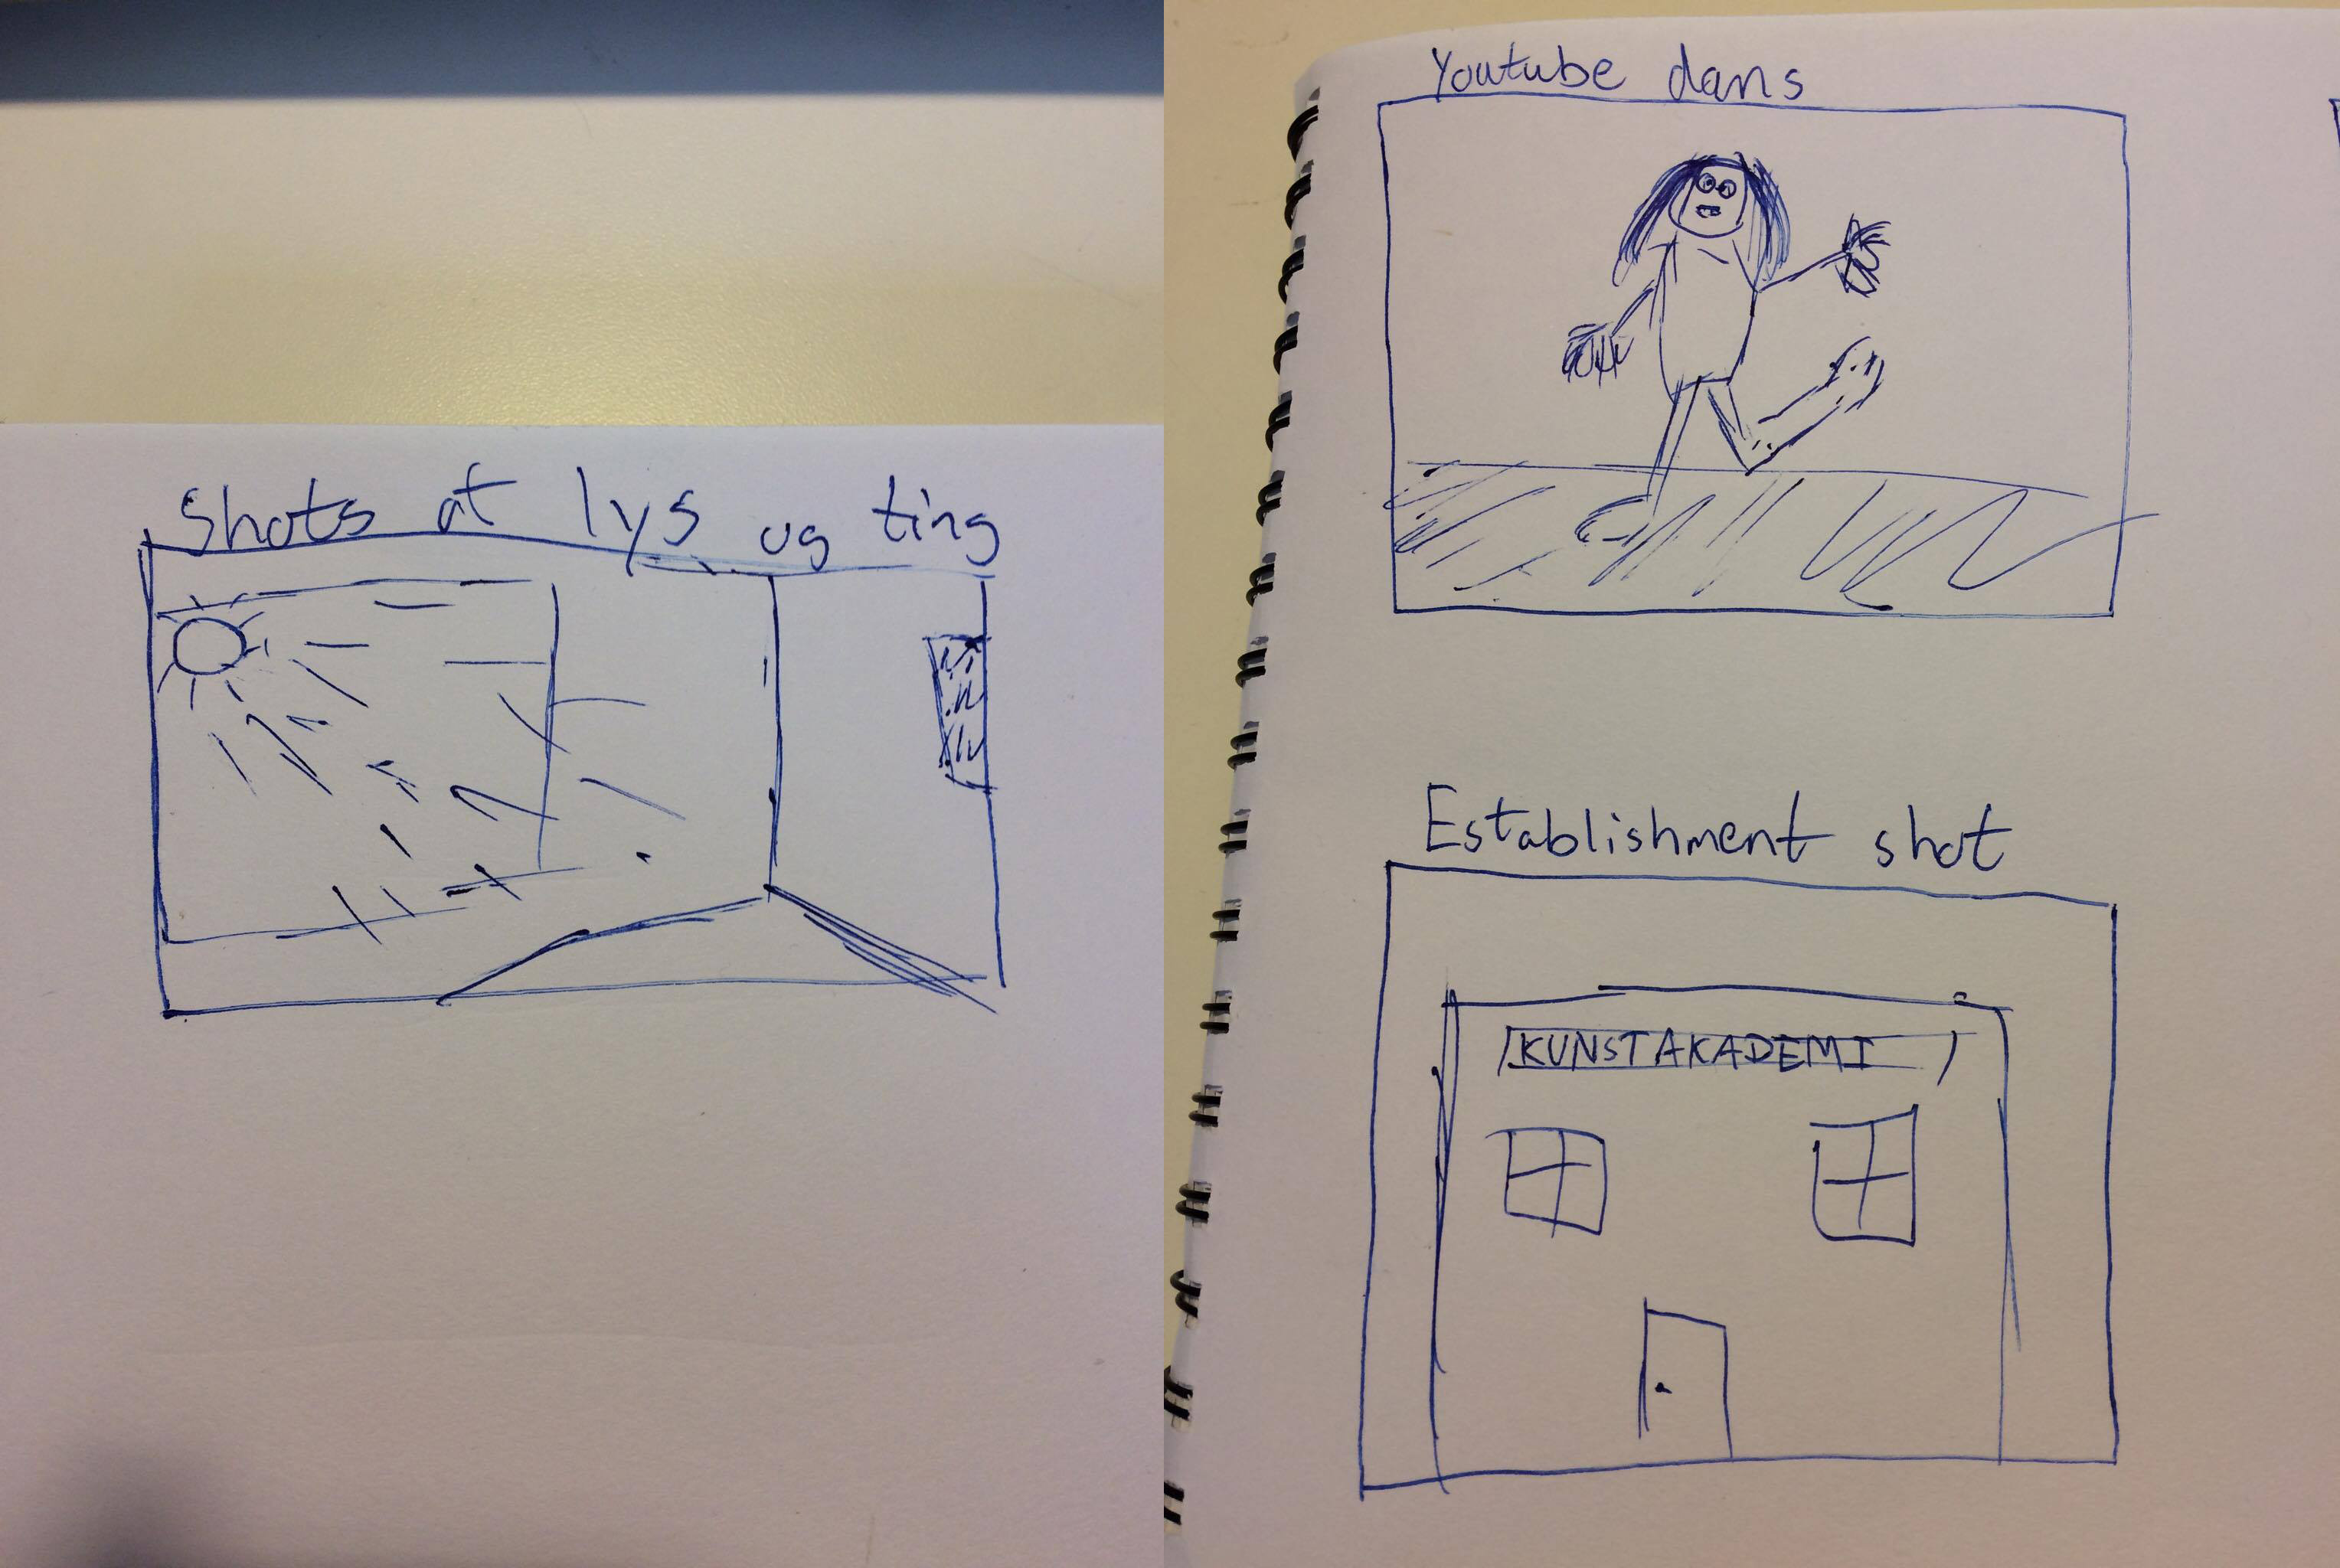 Shots at lys og ting
Youtube dans
Establishment shot
KUNSTAKADEMI